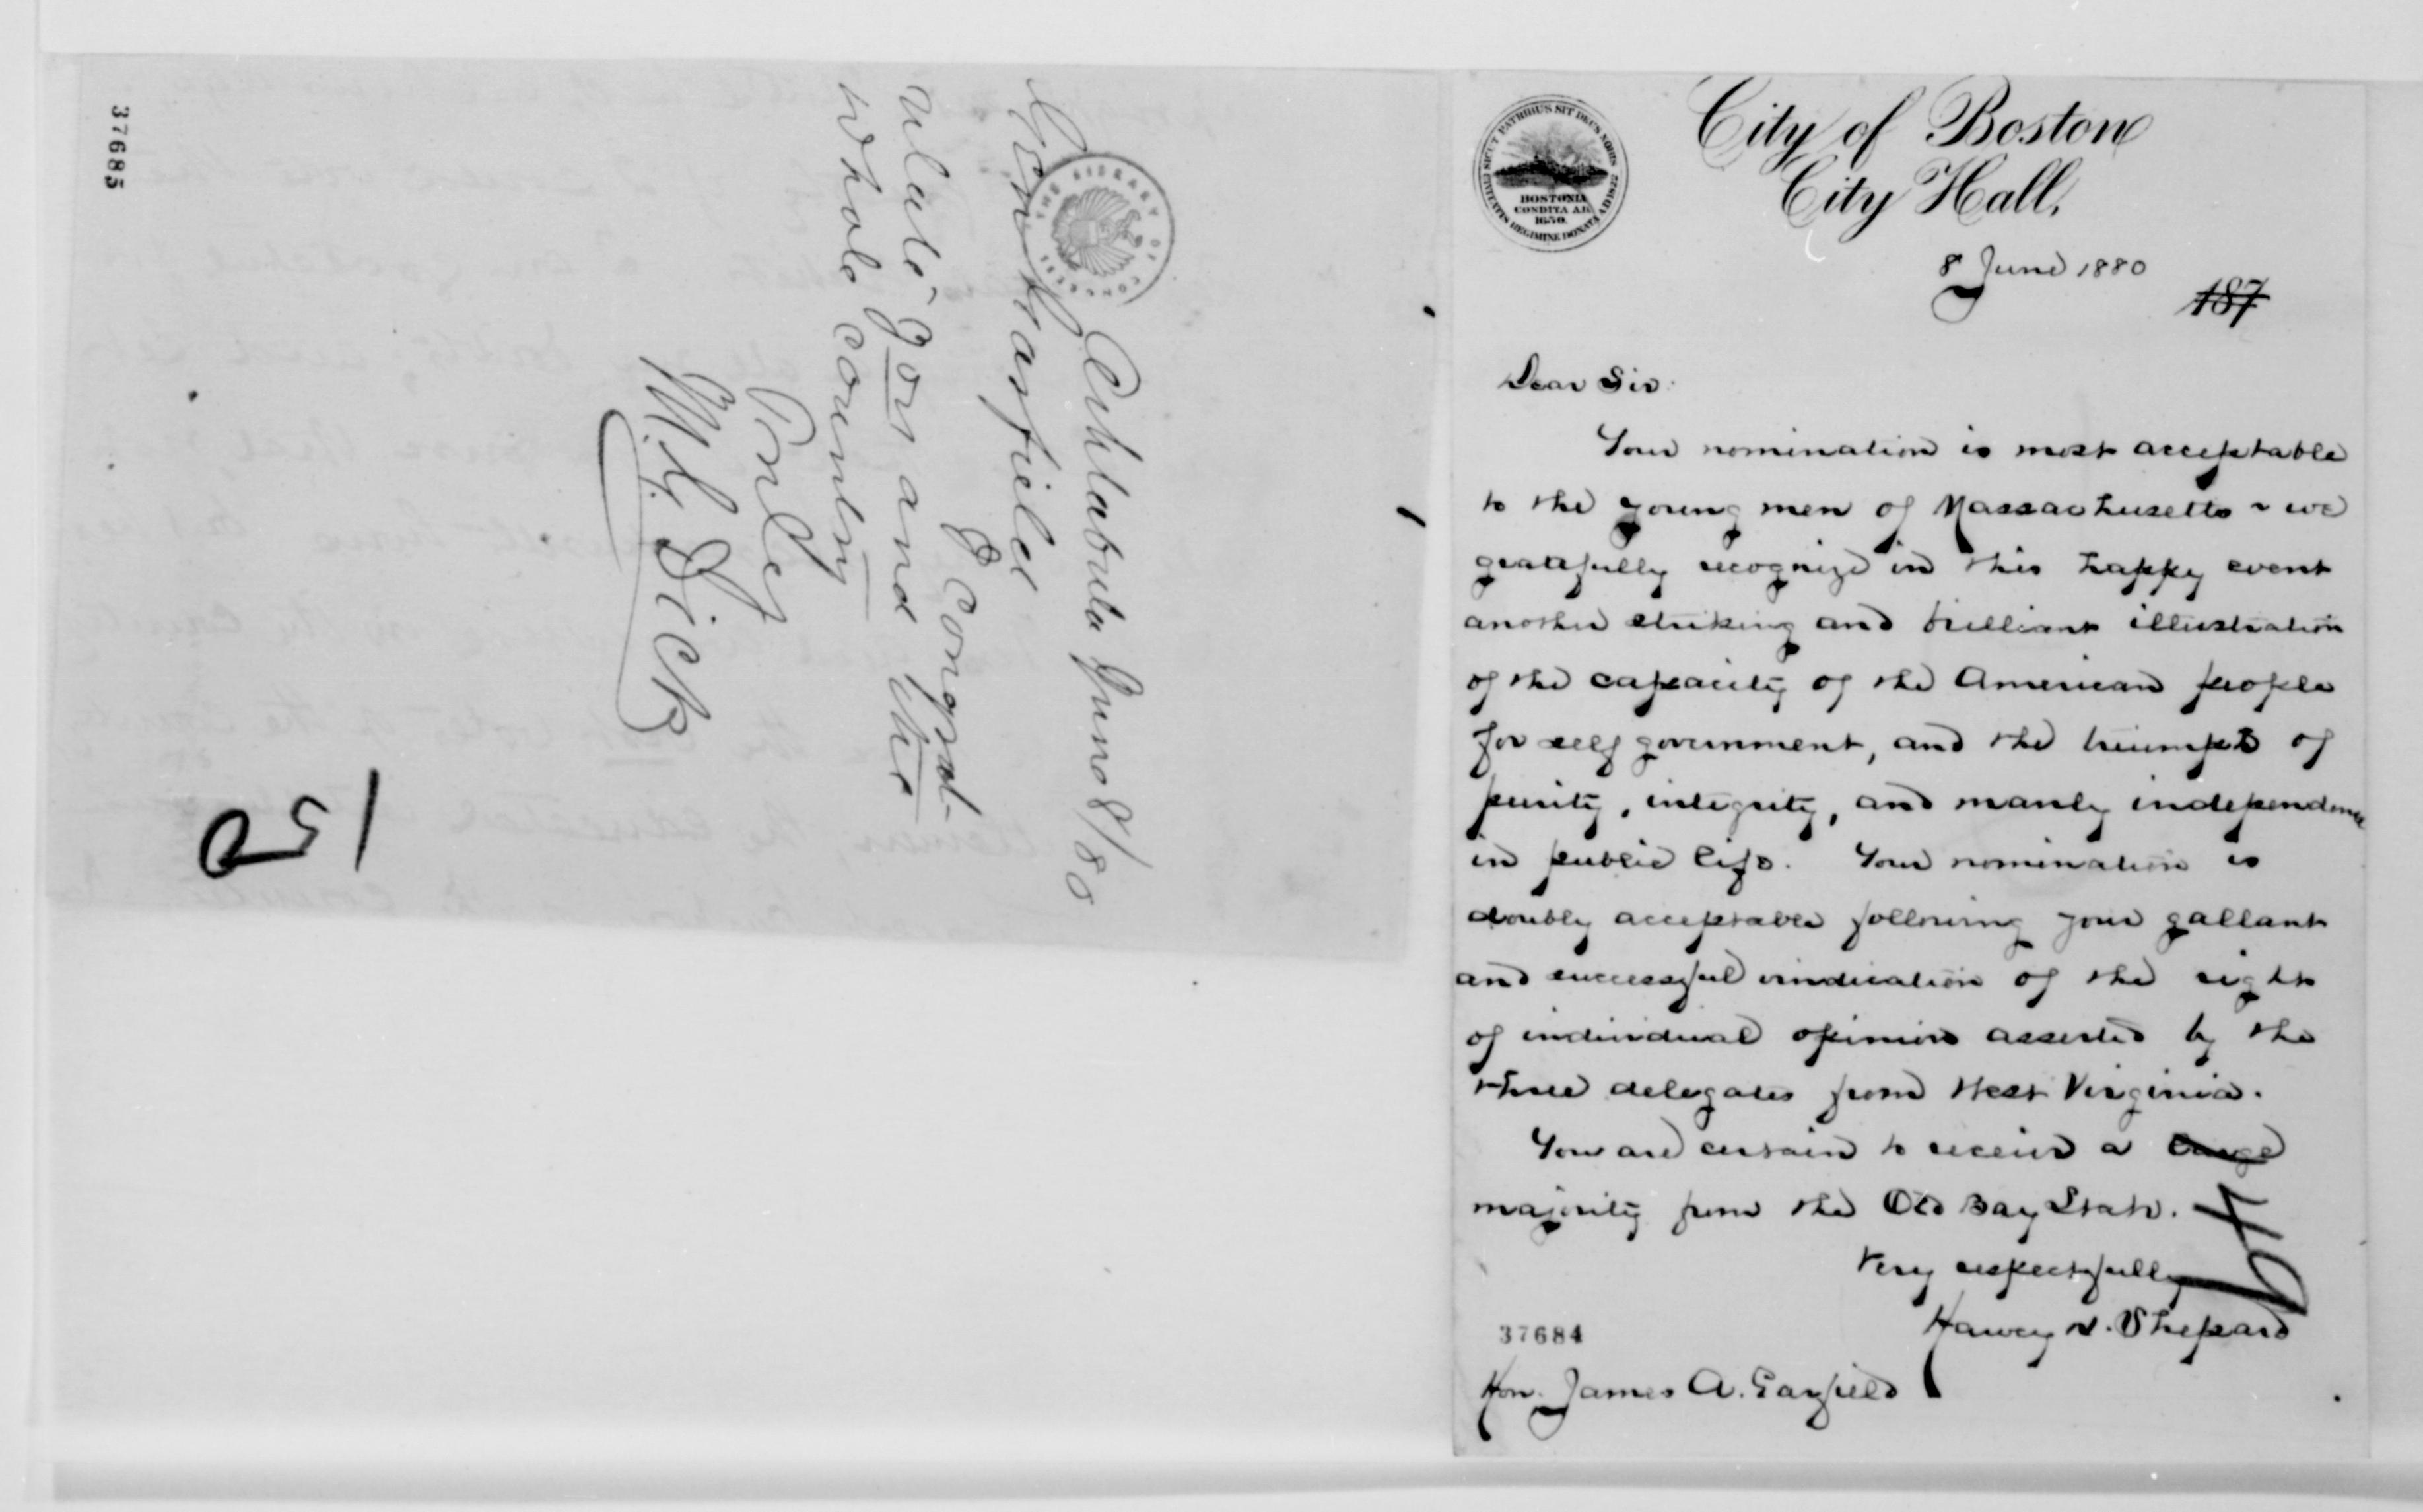 37685
Ashtabula June 8/80
Gen Garfield
I congrat-
ulate you and the
whole country
Truly
Dick
150
THE LIBRARY OF CONGRESS
SICUT PATRIBUS SIT DEUS NOBIS
CIVITATIS REGIMINE DONATA A.D. 1822
BOSTONIA
CONDITA A.D.
1630.
City of Boston
City Hall,
8 June 1880
187
Dear Sir:
Your nomination is most acceptable
to the young men of Massachusetts & we
gratefully recognize in this happy event
another striking and brilliant illustration
of the capacity of the American people
for self government, and the triumph of
purity, integrity, and manly independence
in public life. Your nomination is
doubly acceptable following your gallant
and successful vindication of the right
of individual opinion asserted by the
three delegates from West Virginia.
You are certain to receive a large
majority from the Old Bay State.
49
Very respectfully
Harvey N. Shepard
37684
Hon. James A. Garfield